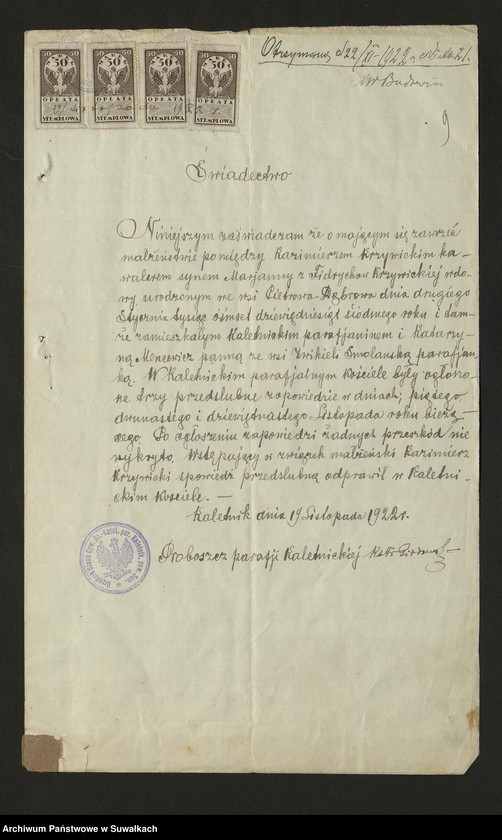 50 50 50 50 50 50 50 50
OPŁATA OPŁATA OPŁATA OPŁATA
STEMPLOWA STEMPLOWA STEMPLOWA STEMPLOWA
Otrzymano d. 22/XI-1922 r.
9
Świadectwo
Niniejszym zaświadczam że o mającym się zawrzeć
małżeństwie pomiędzy Kazimierzem Krzywickim ka-
walerem synem Marjanny z Fidrychów Krzywickiej wdo-
wy, urodzonym we wsi Pietrowa-Dąbrowa dnia drugiego
Stycznia tysiąc ośmset dziewiędziesiąt siódmego roku i tam-
że zamieszkałym Kaletnickim parafjaninem i Katarzy-
ną Moncewicz panną ze wsi Żwikiele Smolańską parafjan-
ką. W Kaletnickim parafjalnym Kościele były ogłoszo-
ne trzy przedślubne zapowiedzie w dniach; piątego
dwunastego i dziewiętnastego Listopada roku bieżą-
cego. Po ogłoszeniu zapowiedzi żadnych przeszkód nie
wykryto. Wstępujący w związek małżeński Kazimierz
Krzywicki spowiedź przedślubną odprawił w Kaletni-
ckim Kościele. —
Kaletnik dnia 19 Listopada 1922 r.
Proboszcz parafji Kaletnickiej
Urzędnik Stanu Cyw. Rz.-Katol. par. Kaletnik, pow. Suw.
Archiwum Państwowe w Suwałkach